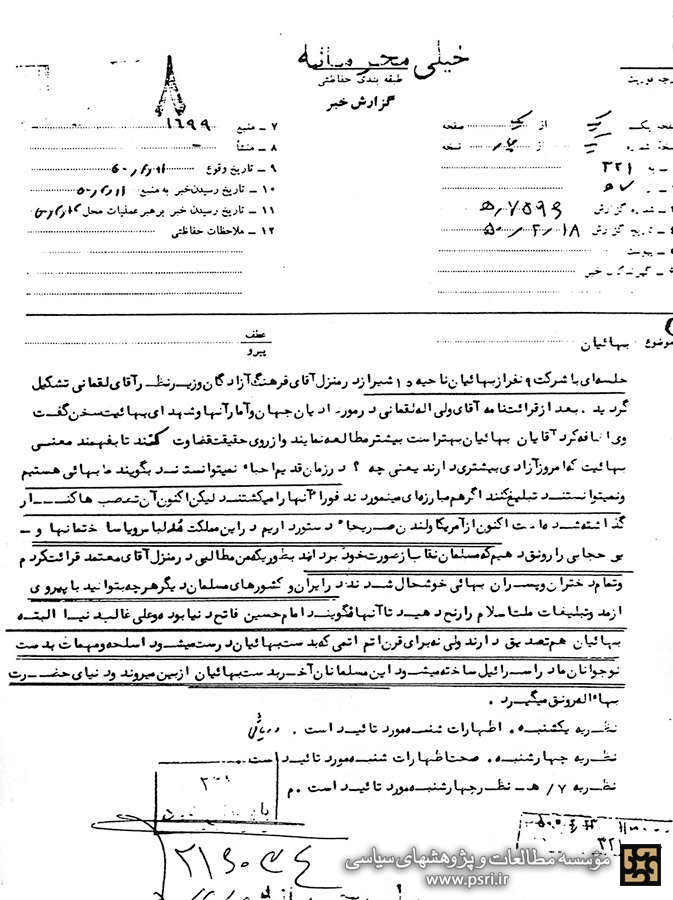 خیلی محرمانه
طبقه بندی حفاظتی
گزارش خبر
صفحه یک از یک صفحه
نسخه شماره از نسخه
به ۳۲۱
۷ ـ منبع ۱۶۹۹
۸ ـ منشأ ـ
۹ ـ تاریخ وقوع
۱۰ ـ تاریخ رسیدن خبر به منبع
۱۱ ـ تاریخ رسیدن خبر برهبر عملیات محل
۱۲ ـ ملاحظات حفاظتی
شماره گزارش
تاریخ گزارش ۵۰/۲/۱۸
پیوست
گیرندگان خبر
موضوع : بهائیان
عطف
پیرو
جلسه‌ای با شرکت ۹ نفر از بهائیان ناحیه ۱۵ شیراز در منزل آقای فرهنگ آزادگان و زیر نظر آقای لقمانی تشکیل
گردید . بعد از قرائت نامه آقای ولی اله لقمانی در مورد ادیان جهان و آمار آنها و شهدای بهائیت سخن گفت
وی اضافه کرد آقایان بهائیان بهتر است بیشتر مطالعه نمایند و از روی حقیقت قضاوت کنند تا بفهمند معنی
بهائیت که امروز آزادی بیشتری دارند یعنی چه ؟ در زمان قدیم احباء نمیتوانستند بگویند ما بهائی هستیم
و نمیتوانستند تبلیغ کنند اگر هم مبارزه‌ای مینمودند فوراً آنها را میکشتند لیکن اکنون آن تعصب ها کنار
گذاشته شده است اکنون از آمریکا و لندن صریحاً دستور داریم در این مملکت مد لباس و یا ساختمانها و ـ
بی حجابی را رونق دهیم که مسلمان نقاب از صورت خود بردارند بطوریکه من مطالبی در منزل آقای معتمد قرائت کردم
و تمام دختران و پسران بهائی خوشحال شدند در ایران و کشورهای مسلمان دیگر هر چه بتوانید با پیروی
از مد و تبلیغات ملت اسلام را رنج دهید تا آنها نگویند امام حسین فاتح دنیا بوده و علی غالب دنیا البته
بهائیان هم تصدیق دارند ولی نه برای قرن اتم اتمی که بدست بهائیان درست میشود اسلحه و مهمات بدست
نوجوانان ما در اسرائیل ساخته میشود این مسلمانان آخر بدست بهائیان از بین میروند و دنیای حضرت
بهاءاله رونق میگیرد .
نظریه یکشنبه . اظهارات شنبه مورد تائید است .
نظریه چهارشنبه . صحت اظهارات شنبه مورد تائید است .
نظریه ۷/ هـ ـ نظر چهارشنبه مورد تائید است . م
مؤسسه مطالعات و پژوهشهای سیاسی
www.psri.ir